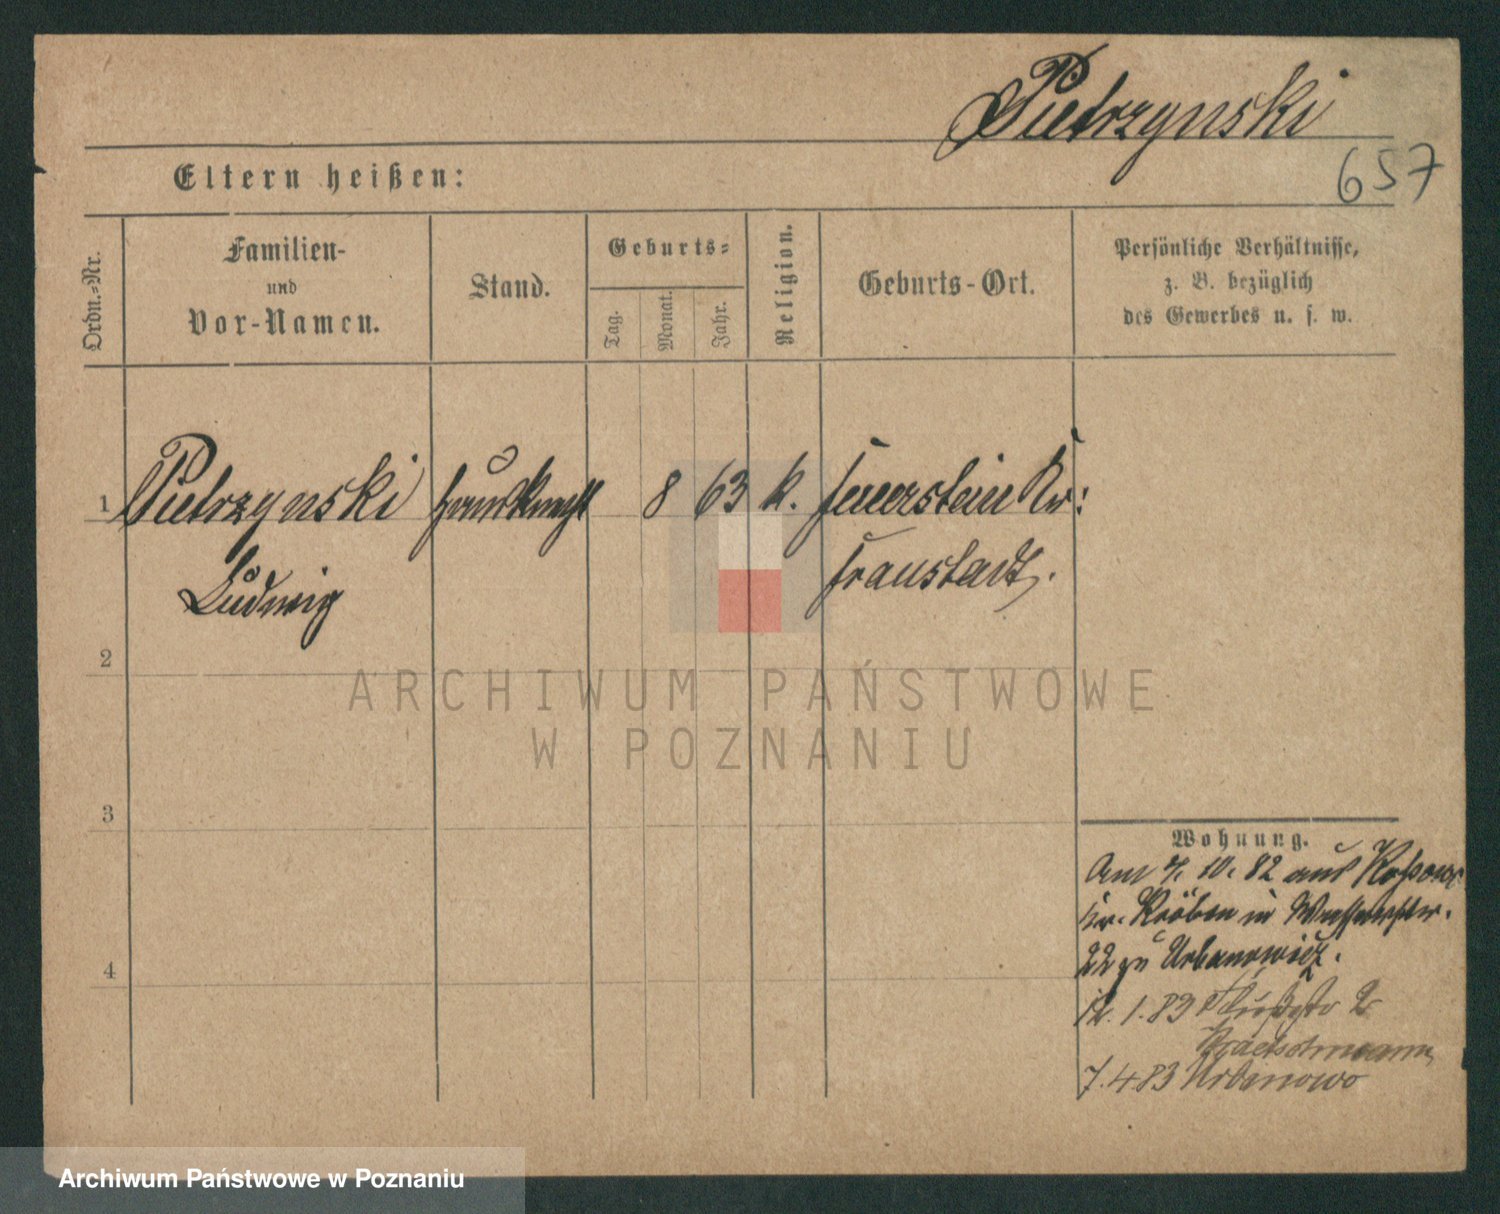 Pietrzynski
657
Eltern heißen:
Ordn.-Nr.
Familien-
und
Vor-Namen.
Stand.
Geburts-
Tag.
Monat.
Jahr.
Religion.
Geburts-Ort.
Persönliche Verhältnisse,
z. B. bezüglich
des Gewerbes u. s. w.
1
Pietrzynski
Hausknecht
8
63
k.
Feuerstein Kr:
Fraustadt.
Ludwig
2
ARCHIWUM PAŃSTWOWE
W POZNANIU
3
4
Wohnung.
Am 7. 10. 82 aus
Kr. Kröben in
22 zu Urbanowicz.
12. 1. 83 2
7.4.83 Urbanowo
Archiwum Państwowe w Poznaniu